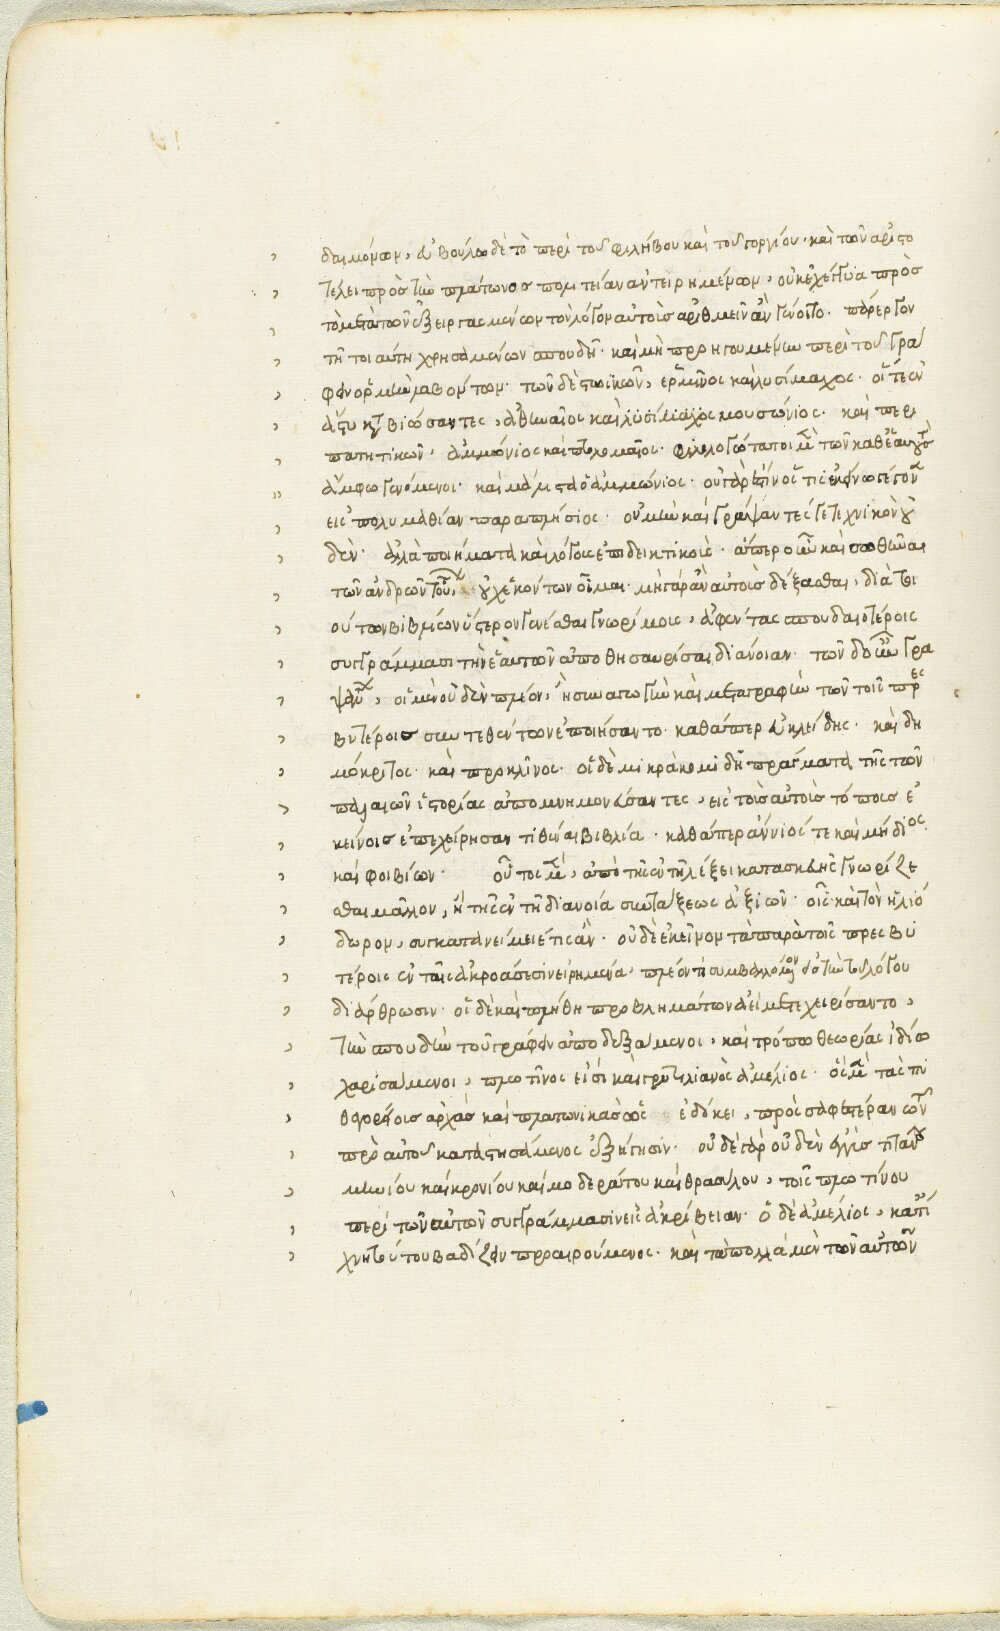 δαιμόνων, εὐβούλω δὲ τὸ περὶ τοῦ φιλήβου καὶ τοῦ γοργίου· καὶ τῶν ἀριστο
τέλει πρὸς τὴν πλάτωνος πολιτείαν ἀντειρημένων, οὐκ ἐχέγγυα πρὸς
τὸ μετὰ τῶν ἐξειργασμένων τὸν λόγον αὐτοὺς ἀριθμεῖν ἂν γένοιτο· πάρεργον
τῇ τοιαύτη χρησαμένων σπουδῇ· καὶ μὴ προηγουμένην περὶ τοῦ γρά
φειν ὁρμὴν λαβόντων· τῶν δὲ στωικῶν, ἑρμῖνος καὶ λυσίμαχος· οἵ τε ἐν
ἄστυ καταβιώσαντες, ἀθήναιος καὶ λυσίμαχος μουσώνιος· καὶ περι
πατητικῶν, ἀμμώνιος καὶ πτολεμαῖος· φιλολογώτατοι μὲν τῶν καθ' ἑαυτοὺς
ἄμφω γενόμενοι· καὶ μάλιστα ὁ ἀμμώνιος· οὐ γάρ ἐστιν ὅς τις ἐκείνω γέγονεν
εἰς πολυμάθίαν παραπλήσιος· οὐ μὴν καὶ γράψάντές γε τεχνικὸν οὐ
δὲν· ἀλλὰ ποιήματα καὶ λόγους ἐπιδεικτικούς· ἅπερ οὖν καὶ σωθῆναι
τῶν ἀνδρῶν τούτων οὐχ ἑκόντων οἶμαι· μὴ γὰρ ἂν αὐτοὺς δέξασθαι, διὰ τοι
ούτων βιβλίων ὕστερον γενέσθαι γνωρίμους, ἀφέντας σπουδαιοτέροις
συγγράμμασι τὴν ἑαυτῶν ἀποθησαυρίσαι διάνοιαν· τῶν δ' οὖν γρα
ψάντων, οἱ μὲν οὐδὲν πλέον, ἢ συναγωγὴν καὶ μεταγραφὴν τῶν τοῖς πρεσ
βυτέροις συντεθέντων ἐποιήσαντο· καθάπερ εὐκλείδης· καὶ δη
μόκριτος· καὶ προκλῖνος· οἱ δὲ μικρὰ κομιδῇ πράγματα τῆς τῶν
παλαιῶν ἱστορίας ἀπομνημονεύσαντες, εἰς τοὺς αὐτοὺς τόπους ἐ
κείνοις ἐπεχείρησαν τιθέναι βιβλία· καθάπερ ἄννιός τε καὶ μήδιος
καὶ φοιβίων· οὗτος μὲν, ἀπὸ τῆς ἐν τῇ λέξει κατασκευῆς γνωρίζε
σθαι μᾶλλον, ἢ τῆς ἐν τῇ διανοία συντάξεως ἀξιῶν· οἷς καὶ τὸν ἡλιό
δωρον, συγκατανείμειέ τις ἄν· οὐδὲ ἐκεῖνον τὰ παρὰ τοῖς πρεσβυ
τέροις ἐν ταῖς ἀκροάσεσιν εἰρημένα, πλέον τι συμβαλλόμενον εἰς τὴν τοῦ λόγου
διάρθρωσιν· οἱ δὲ καὶ πλήθη προβλημάτων ἃ εἰ μετεχειρίσαντο,
τὴν σπουδὴν τοῦ γράφειν ἀποδεξάμενοι, καὶ τρόπω θεωρίας ἰδίω
χρησάμενοι, πλωτῖνος εἰσὶ καὶ γεντιλιανὸς ἀμέλιος· ὃς μὲν τὰς πυ
θαγορείους ἀρχὰς καὶ πλατωνικὰς ὡς ἐδόκει, πρὸς σαφεστέραν τῶν
πρὸ αὐτοῦ καταστησάμενος ἐξήγησιν· οὐδὲ γὰρ οὐδὲν ἐγγύς τι τὰ νου
μηνίου καὶ κρονίου καὶ μοδεράτου καὶ θρασύλου, τοῖς πλωτίνου
περὶ τῶν αὐτῶν συγγράμμασιν εἰς ἀκρίβειαν· ὁ δὲ ἀμέλιος, κατ' ἴ
χνη τούτου βαδίζειν προαιρούμενος· καὶ τὰ πολλὰ μὲν τῶν αὐτῶν